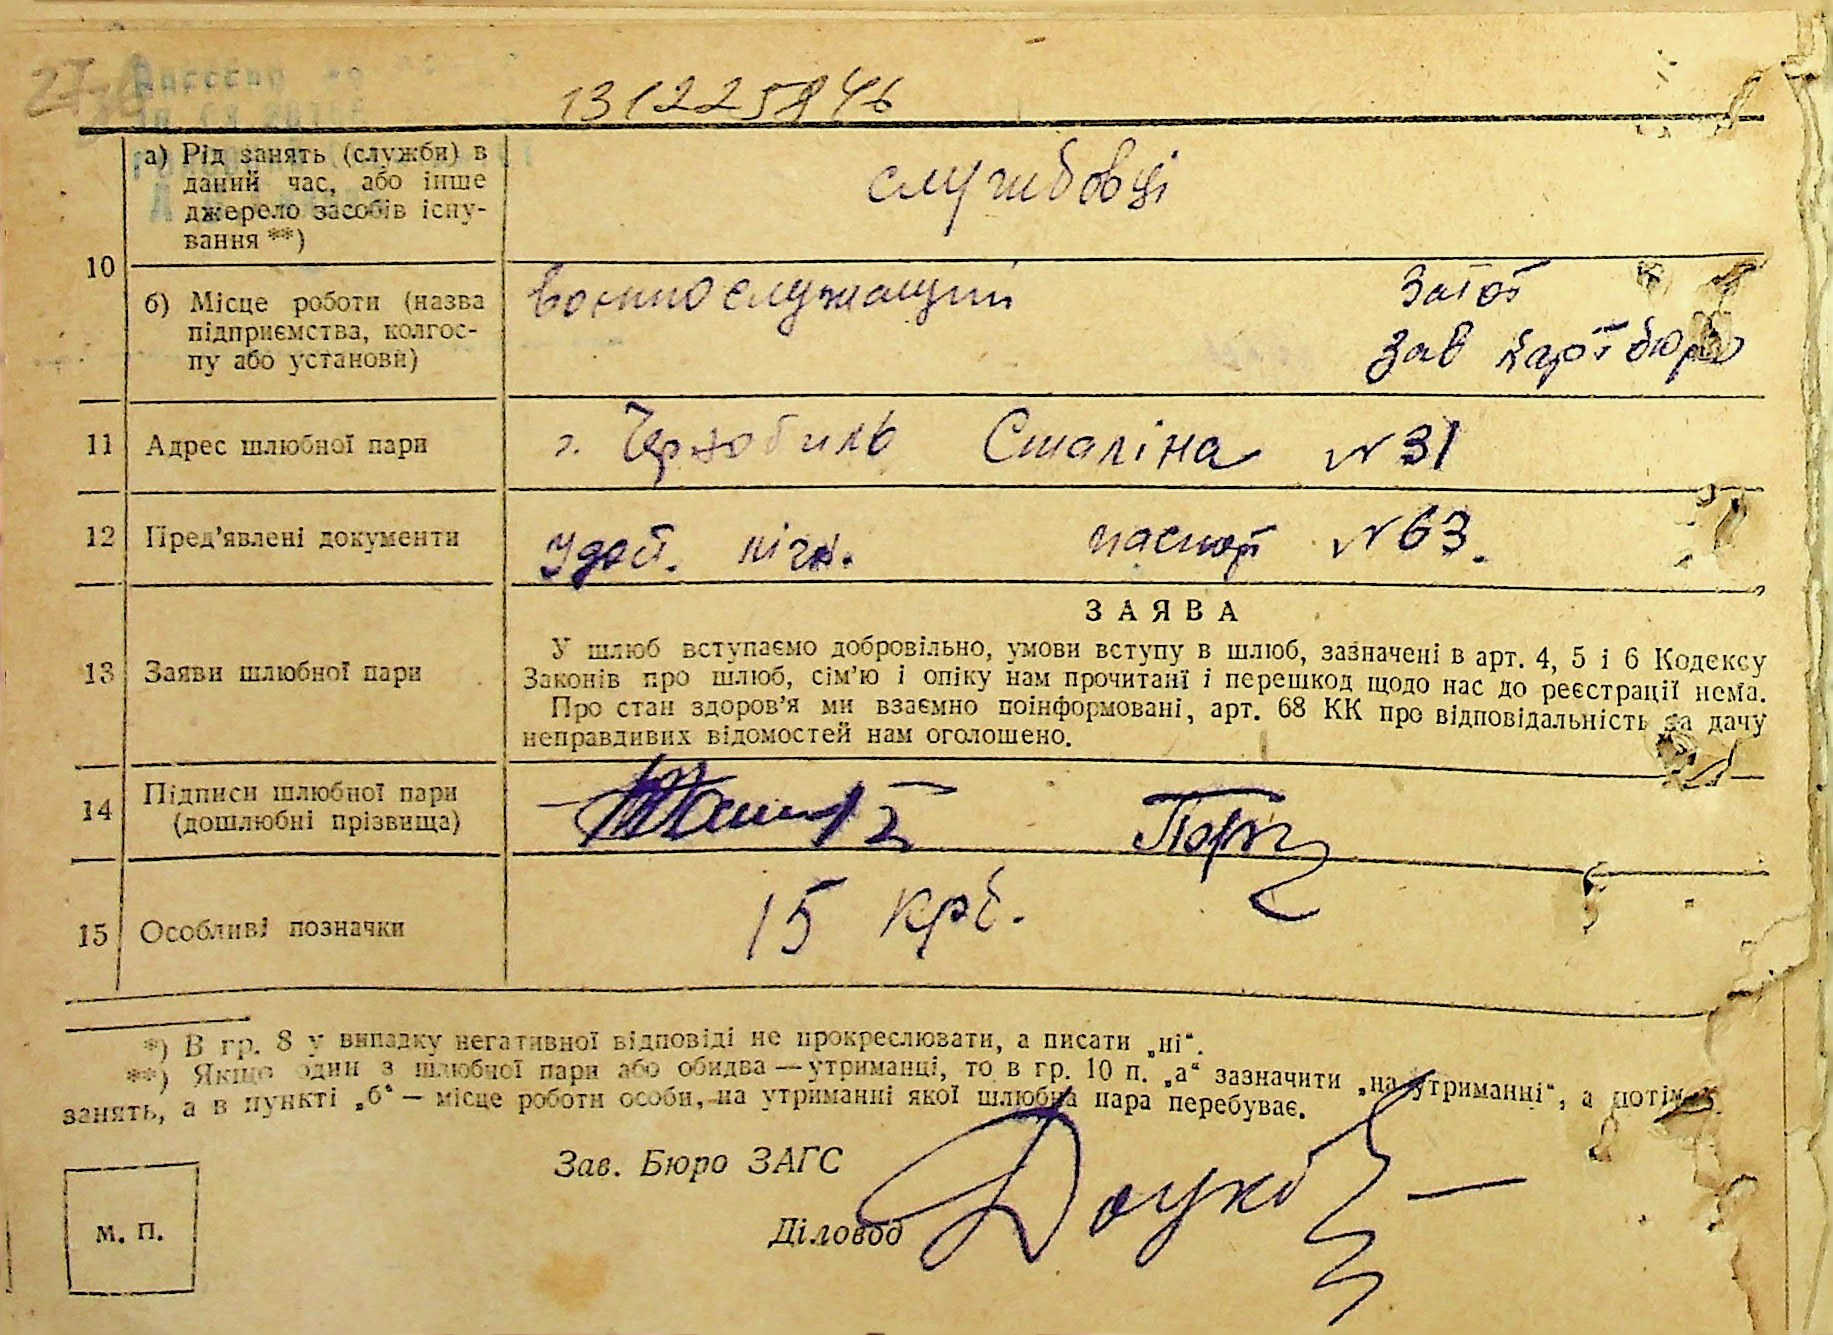 131225846
10
а) Рід занять (служби) в
даний час, або інше
джерело засобів існу-
вання **)
службовці
б) Місце роботи (назва
підприємства, колгос-
пу або установи)
военнослужащий
Загот
Зав картбюро
11 Адрес шлюбної пари
г. Чернобиль Сталіна № 31
12 Пред’явлені документи
Удост. лічн. паспорт № 63.
13 Заяви шлюбної пари
ЗАЯВА
У шлюб вступаємо добровільно, умови вступу в шлюб, зазначені в арт. 4, 5 і 6 Кодексу
Законів про шлюб, сім’ю і опіку нам прочитані і перешкод щодо нас до реєстрації нема.
Про стан здоров’я ми взаємно поінформовані, арт. 68 КК про відповідальність за дачу
неправдивих відомостей нам оголошено.
14 Підписи шлюбної пари
(дошлюбні прізвища)
15 Особливі позначки
15 крб.
*) В гр. 8 у випадку негативної відповіді не прокреслювати, а писати „ні“.
**) Якщо один з шлюбної пари або обидва — утриманці, то в гр. 10 п. „а“ зазначити „на утриманні“, а потім
занять, а в пункті „б“ — місце роботи особи, на утриманні якої шлюбна пара перебуває.
Зав. Бюро ЗАГС
Діловод
м. п.